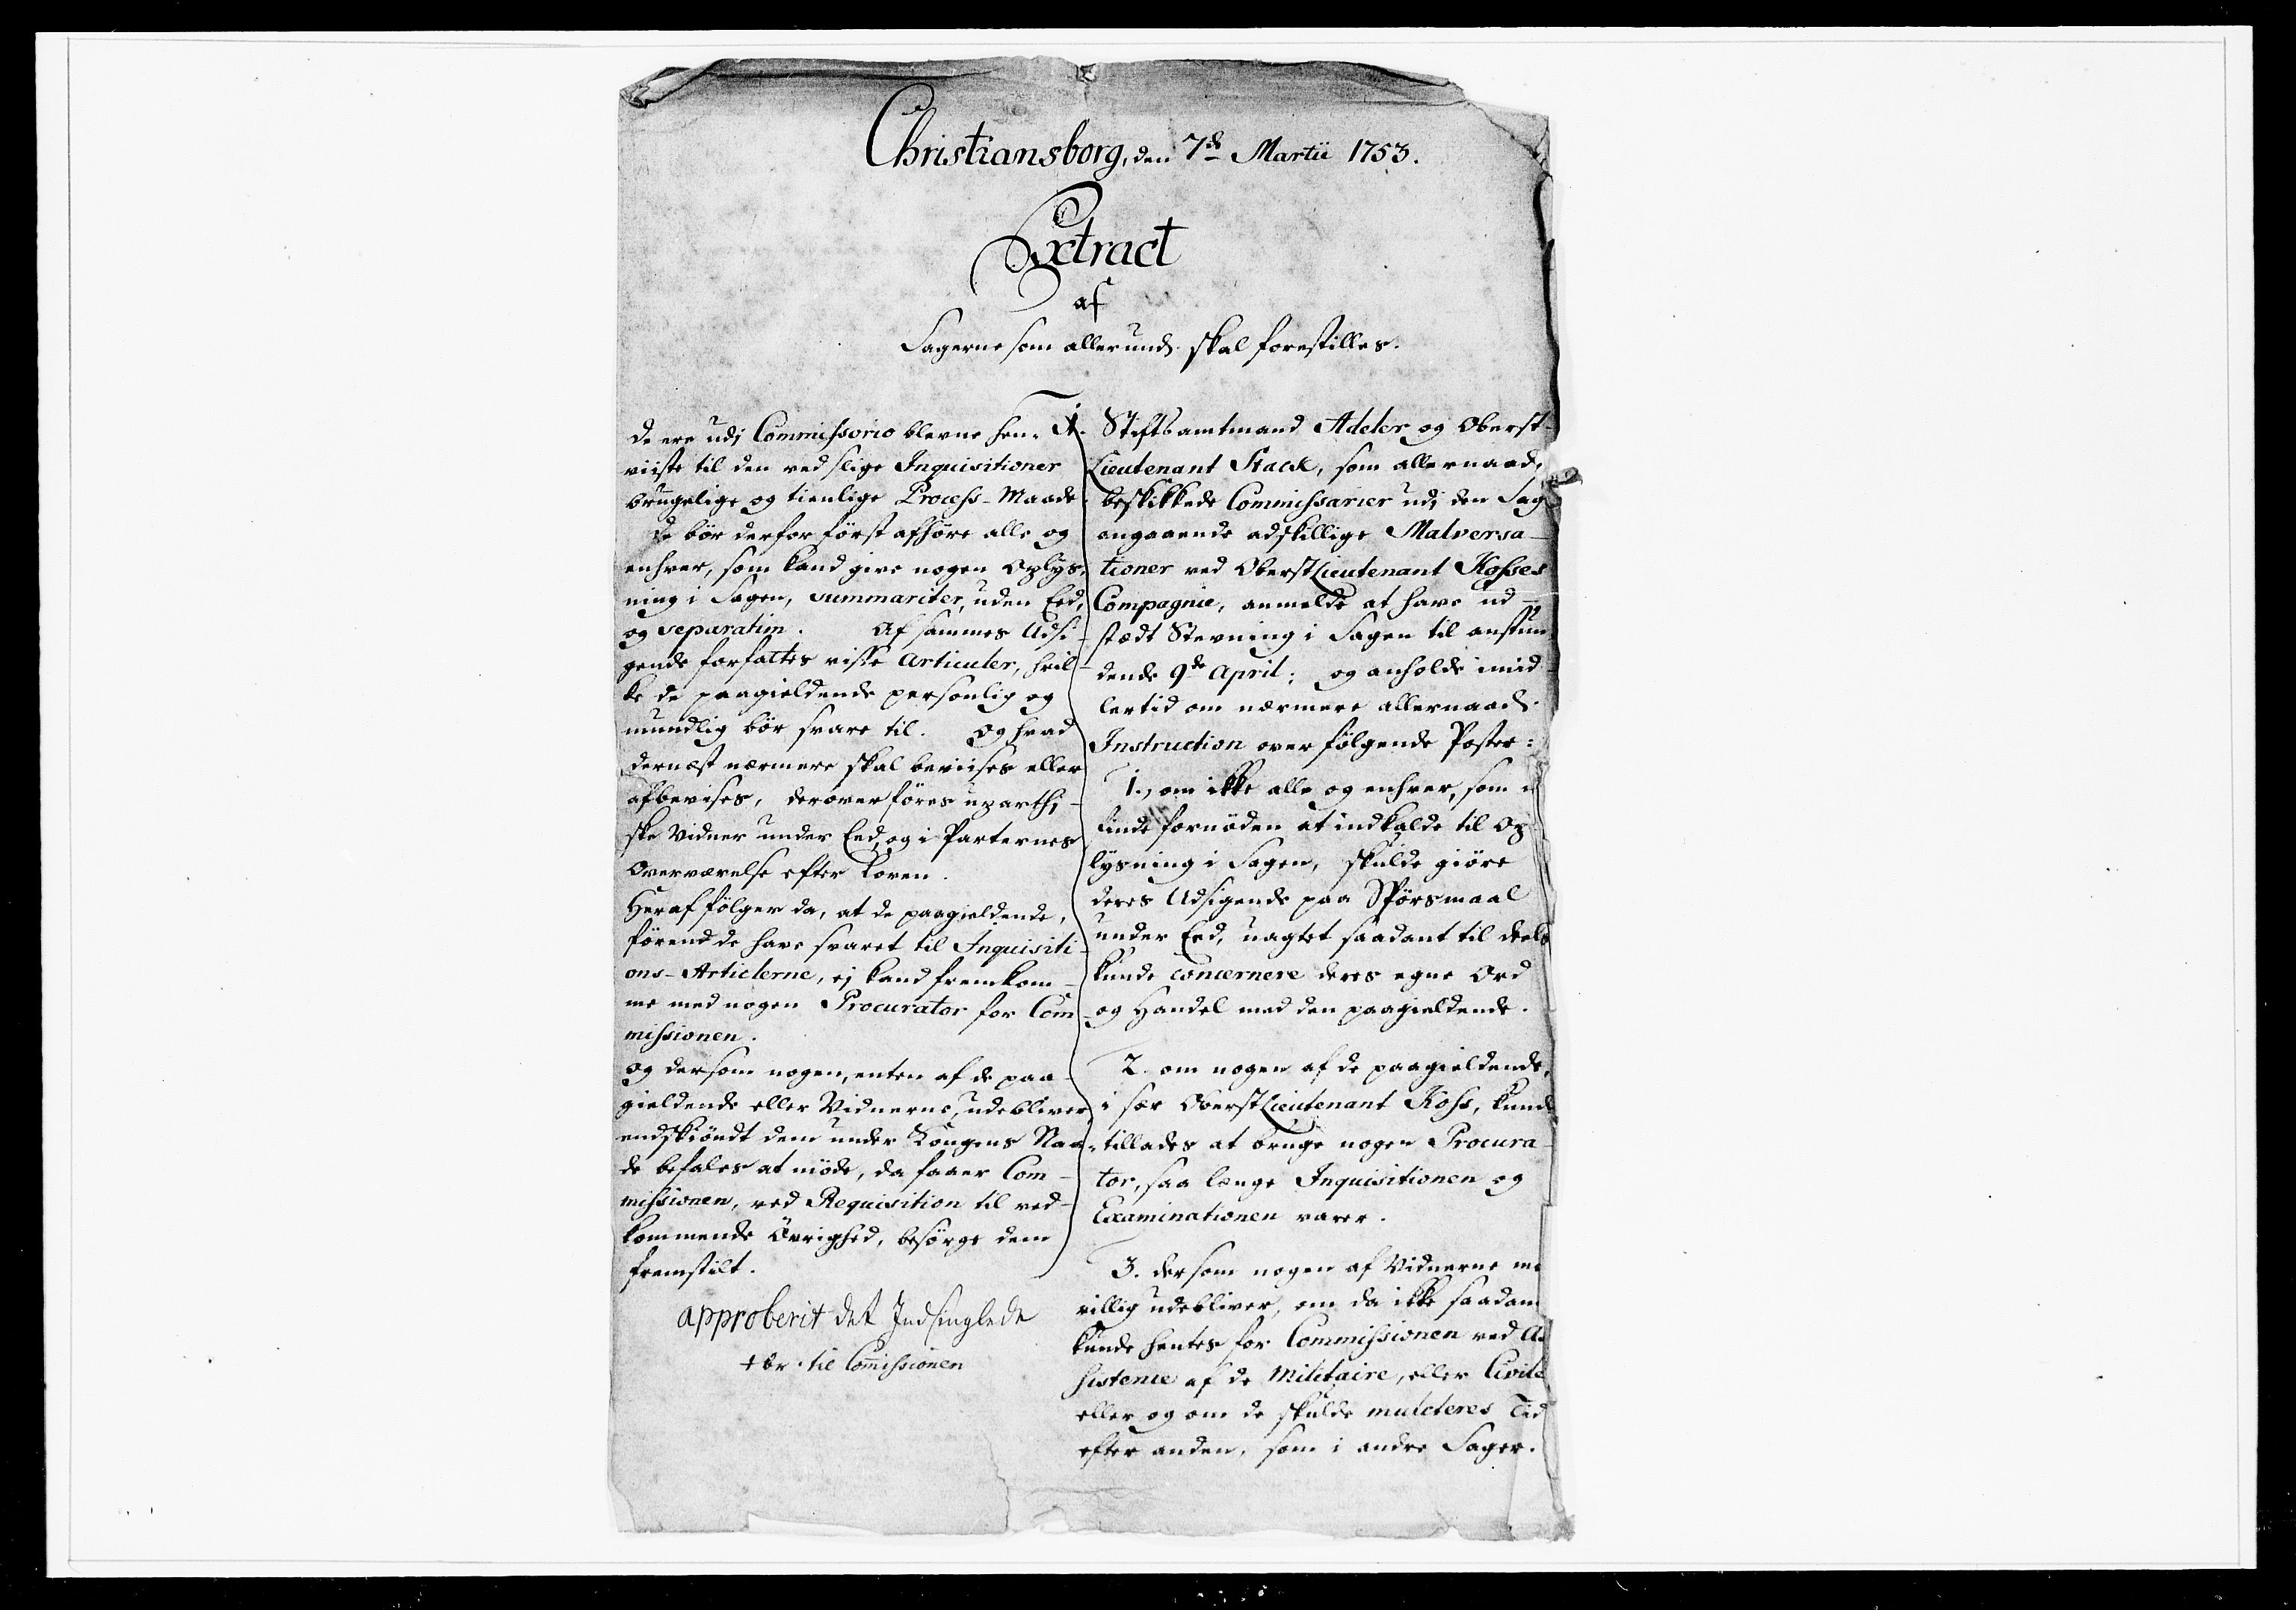 Christiansborg, den 7de Martii 1753.
Extract
af
Sagerne som allerund. skal forestilles.
1.
Stiftsamtmand Adeler og Oberst-
Lieutenant Stack, som allernaad.
beskikkede Commissarier udj den Sag
angaaende adskillige Malversa-
tioner ved OberstLieutenant Kosses
Compagnie, anmelde at have ud-
stædt Stevning i Sagen til anstun-
dende 9de April; og anholde imid-
lertid om nærmere allernaad.
Instruction over følgende Poster:
1., om ikke alle og enhver, som
finde fornøden at indkalde til Op-
lysning i Sagen, skulde giøre
deres Udsigende paa Spørsmaal
under Eed, uagtet saadant til deels
kunde concernere deres egne Ord
og Handel med den paagieldende.
2. om nogen af de paagieldende,
i sær OberstLieutenant Koss, kunde
tillades at bruge nogen Procura-
tor, saa længe Inquisitionen og
Examinationen varer.
3. dersom nogen af Vidnerne
villig udebliver, om da ikke saadan
kunde hentes for Commissionen ved As-
sistence af de Militaire, eller Civile
eller og om de skulde mulcteres Tid
efter anden, som i andre Sager.
De ere udj Commissorio blevne hen-
viiste til den ved slige Inquisitioner
brugelige og tienlige Process-Maade.
De bør derfor først afhøre alle og
enhver, som kand give nogen Oplys-
ning i Sagen, summariter, uden Eed,
og separatim. Af sammes Udsi-
gende forfattes visse Articuler, hvil-
ke de paagieldende personlig og
mundlig bør svare til. Og hvad
dernæst nærmere skal beviises eller
afbevises, derover føres uparthi-
ske Vidner under Eed, og i Parternes
Overværelse efter Loven.
Heraf følger da, at de paagieldende,
førend de have svaret til Inquisiti-
ons-Articlerne, ej kand fremkom-
me med nogen Procurator for Com-
missionen.
Og dersom nogen, enten af de paa-
gieldende eller Vidnerne, udebliver
endskiøndt dem under Kongens Naa-
de befales at møde, da faaer Com-
missionen, ved Requisition til ved-
kommende Øvrighed, besørge dem
fremstilt.
approberit det
til Commissionen